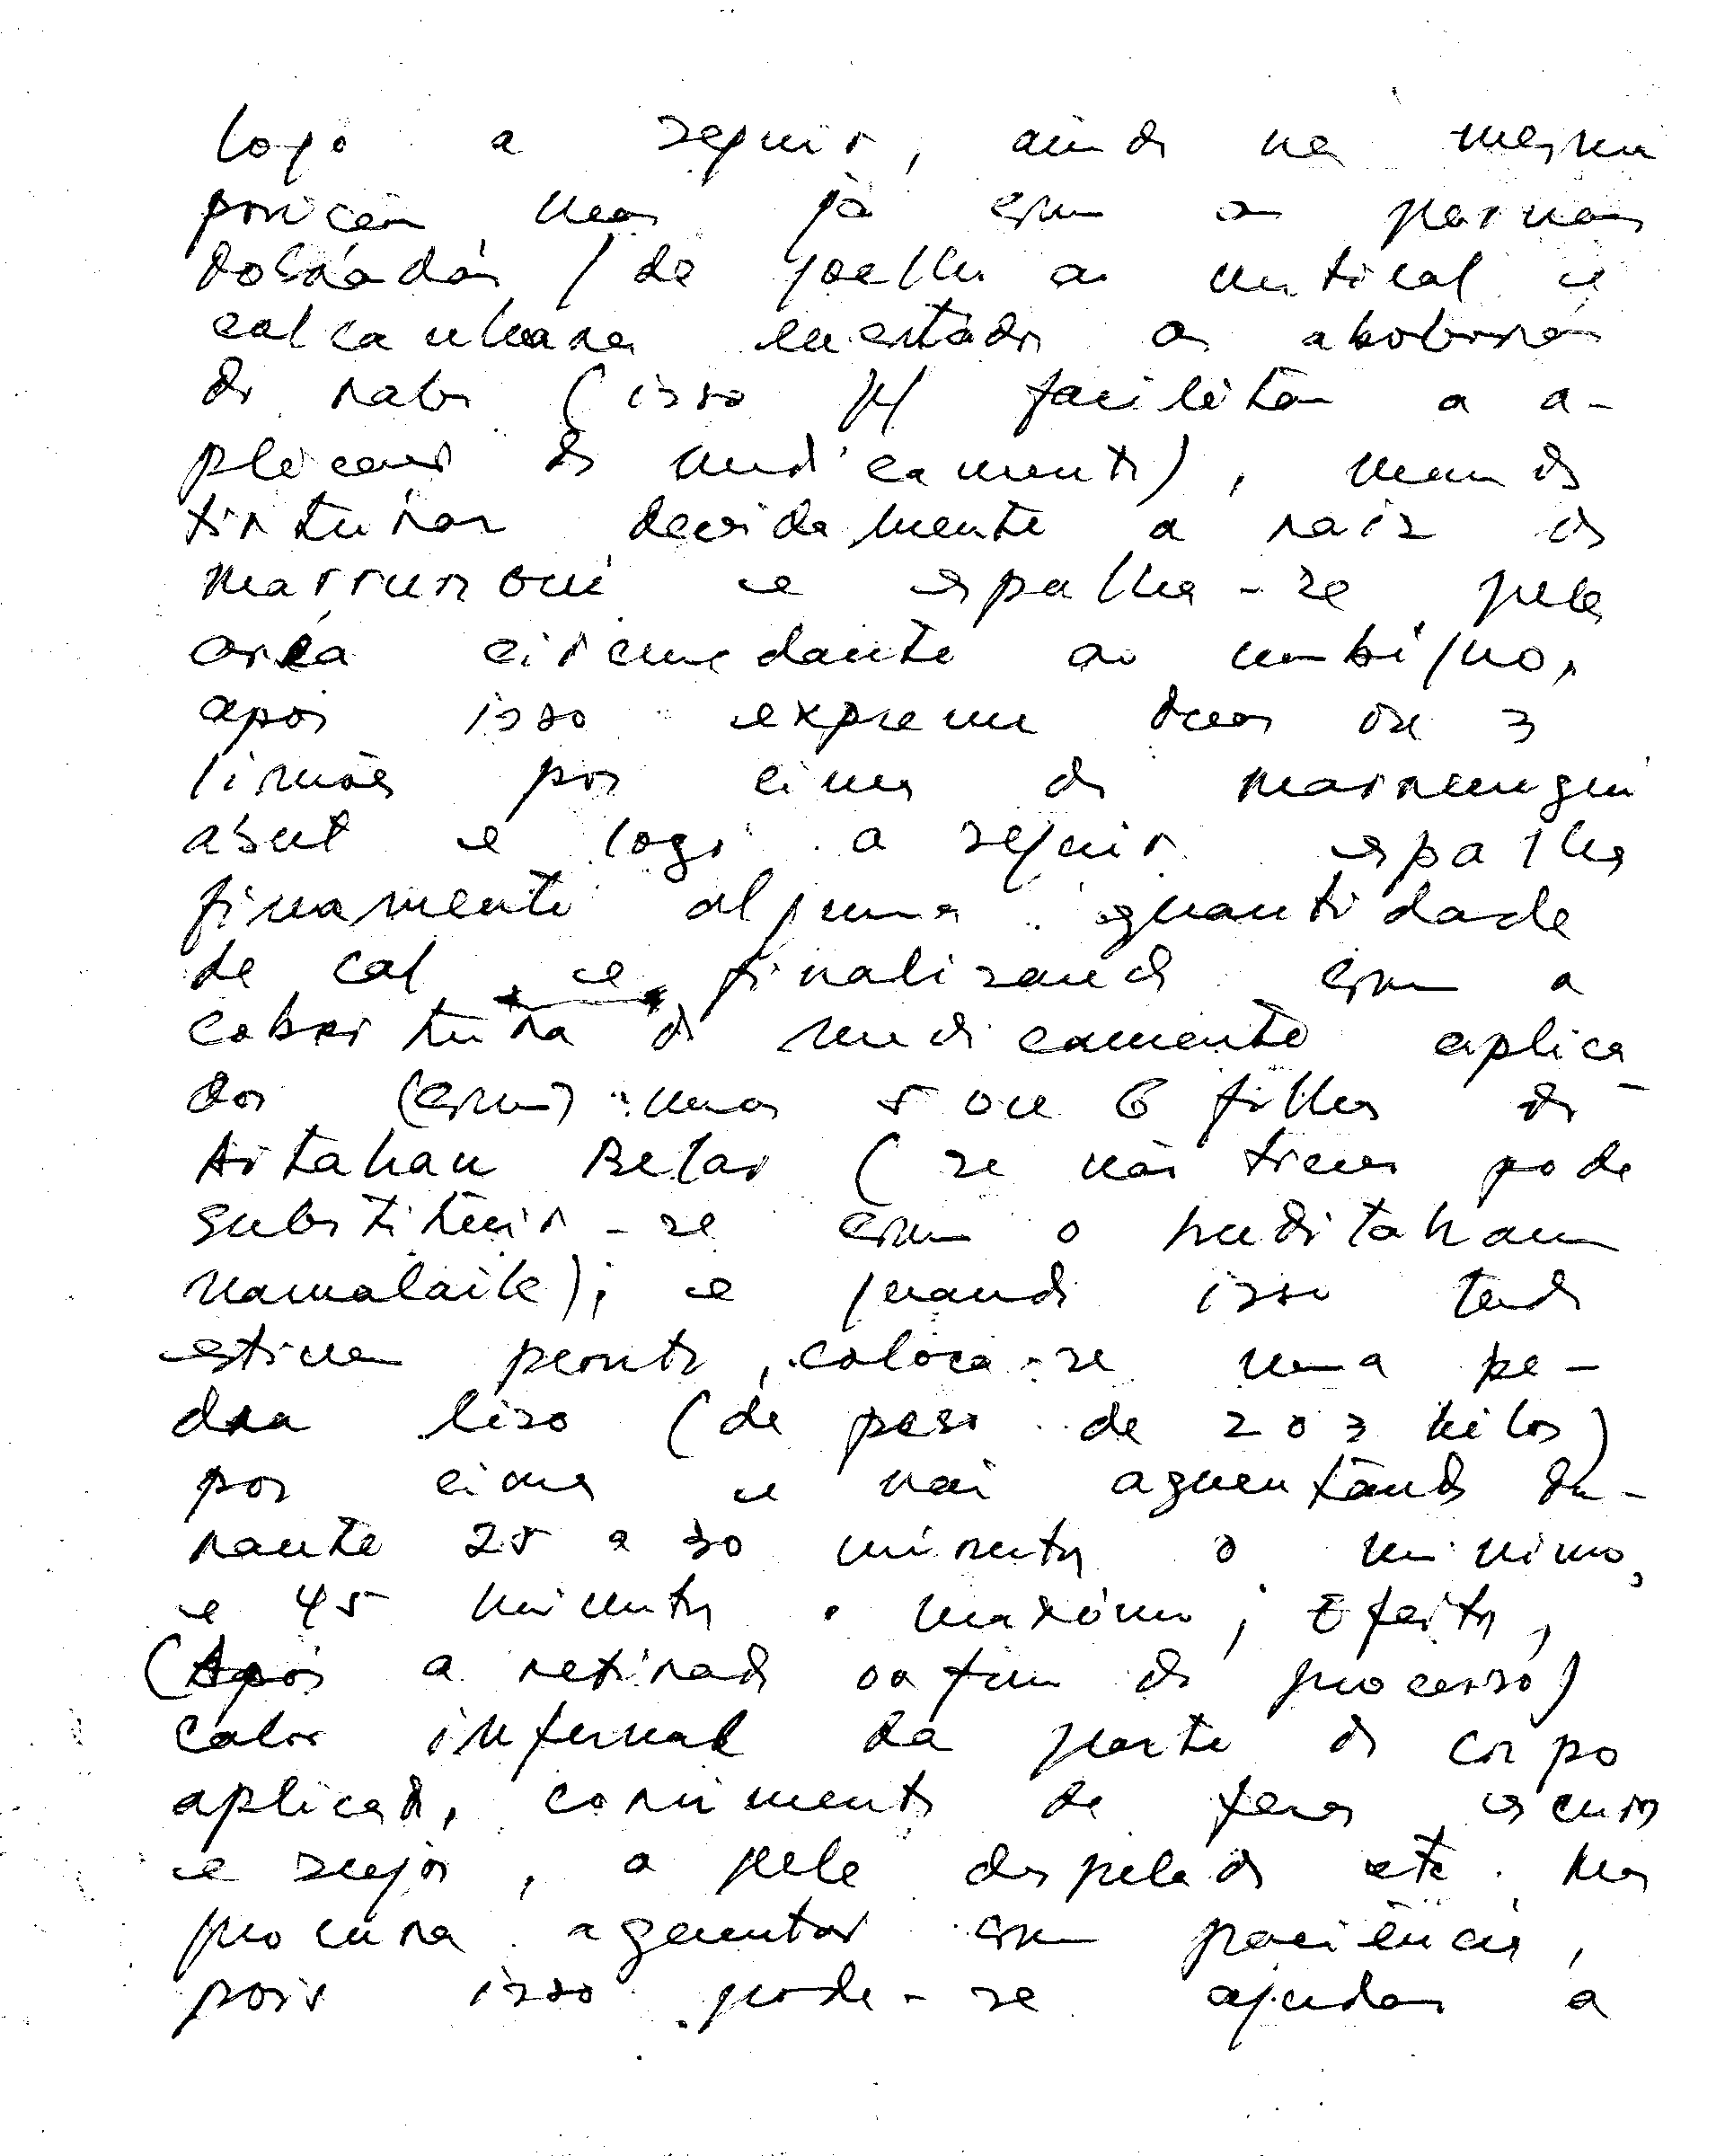 logo a seguir, ainda na mesma
posição mas já com as pernas
dobradas / de joelho ao vertical e
calcanhares encostados as
do rabo (isso p/ facilitar a a-
plicação do medicamento),
triturar devidamente a raiz do
marrungui e espalha-se pela
area circundante ao umbigo,
apos isso expreme duas ou 3
limões por cima do marrungui
abut e logo a seguir espalha
finamente alguma quantidade
de cal e finalizando com a
cobertura do medicamento aplica
dos (com) umas 5 ou 6 folhas do
Aitahan Belar (se não tiver pode
substituir-se com o huditahan
namalaik); e quando isso tudo
estiver pronto, coloca-se uma pe-
dra liso (de peso de 2 o 3 kilos)
por cima e vai aguentando du-
rante 25 a 30 minutos o minimo,
e 45 minutos o maximo; Efeitos,
(Após a retirada ou fim do processo)
calor infernal da parte do corpo
aplicado, corrimento de fezes escuros
e sujos, a pele despelado etc. Mas
procura aguentar com paciência,
pois isso pode-se ajudar a